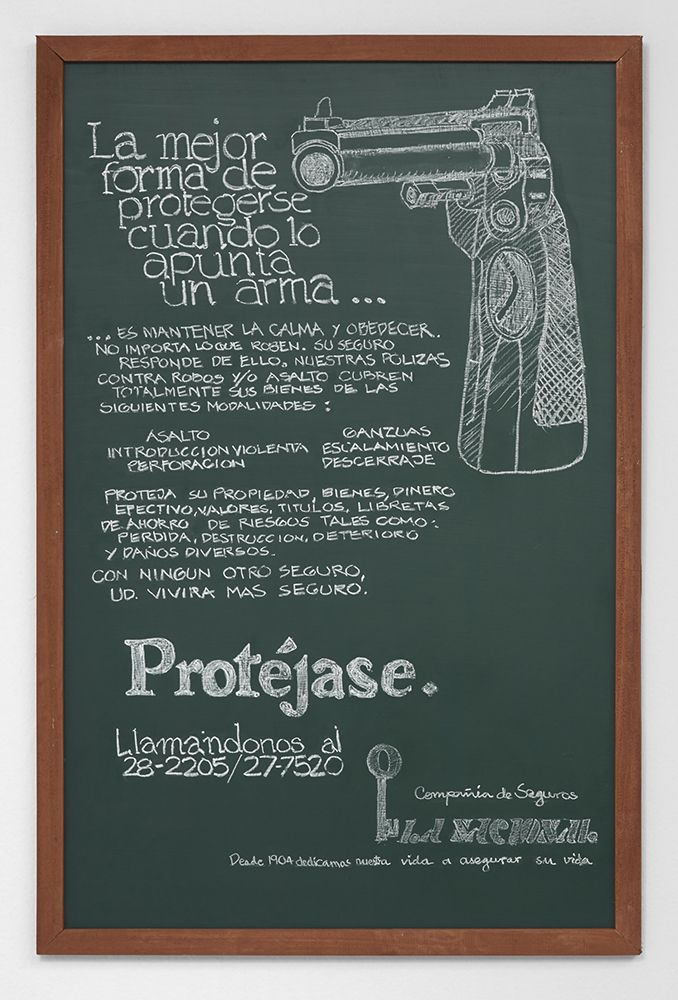 La mejor
forma de
protegerse
cuando lo
apunta
un arma ...
... ES MANTENER LA CALMA Y OBEDECER.
NO IMPORTA LO QUE ROBEN. SU SEGURO
RESPONDE DE ELLO, NUESTRAS POLIZAS
CONTRA ROBOS Y/O ASALTO CUBREN
TOTALMENTE SUS BIENES DE LAS
SIGUIENTES MODALIDADES :
ASALTO
INTRODUCCION VIOLENTA
PERFORACION
GANZUAS
ESCALAMIENTO
DESCERRAJE
PROTEJA SU PROPIEDAD, BIENES, DINERO
EFECTIVO, VALORES, TITULOS, LIBRETAS
DE AHORRO DE RIESGOS TALES COMO:
PERDIDA, DESTRUCCION, DETERIORO
Y DAÑOS DIVERSOS.
CON NINGUN OTRO SEGURO,
UD. VIVIRA MAS SEGURO.
Protéjase.
Llamándonos al
28-2205/27-7520
Compañia de Seguros
LA NACIONAL
Desde 1904 dedicamos nuestra vida a asegurar su vida